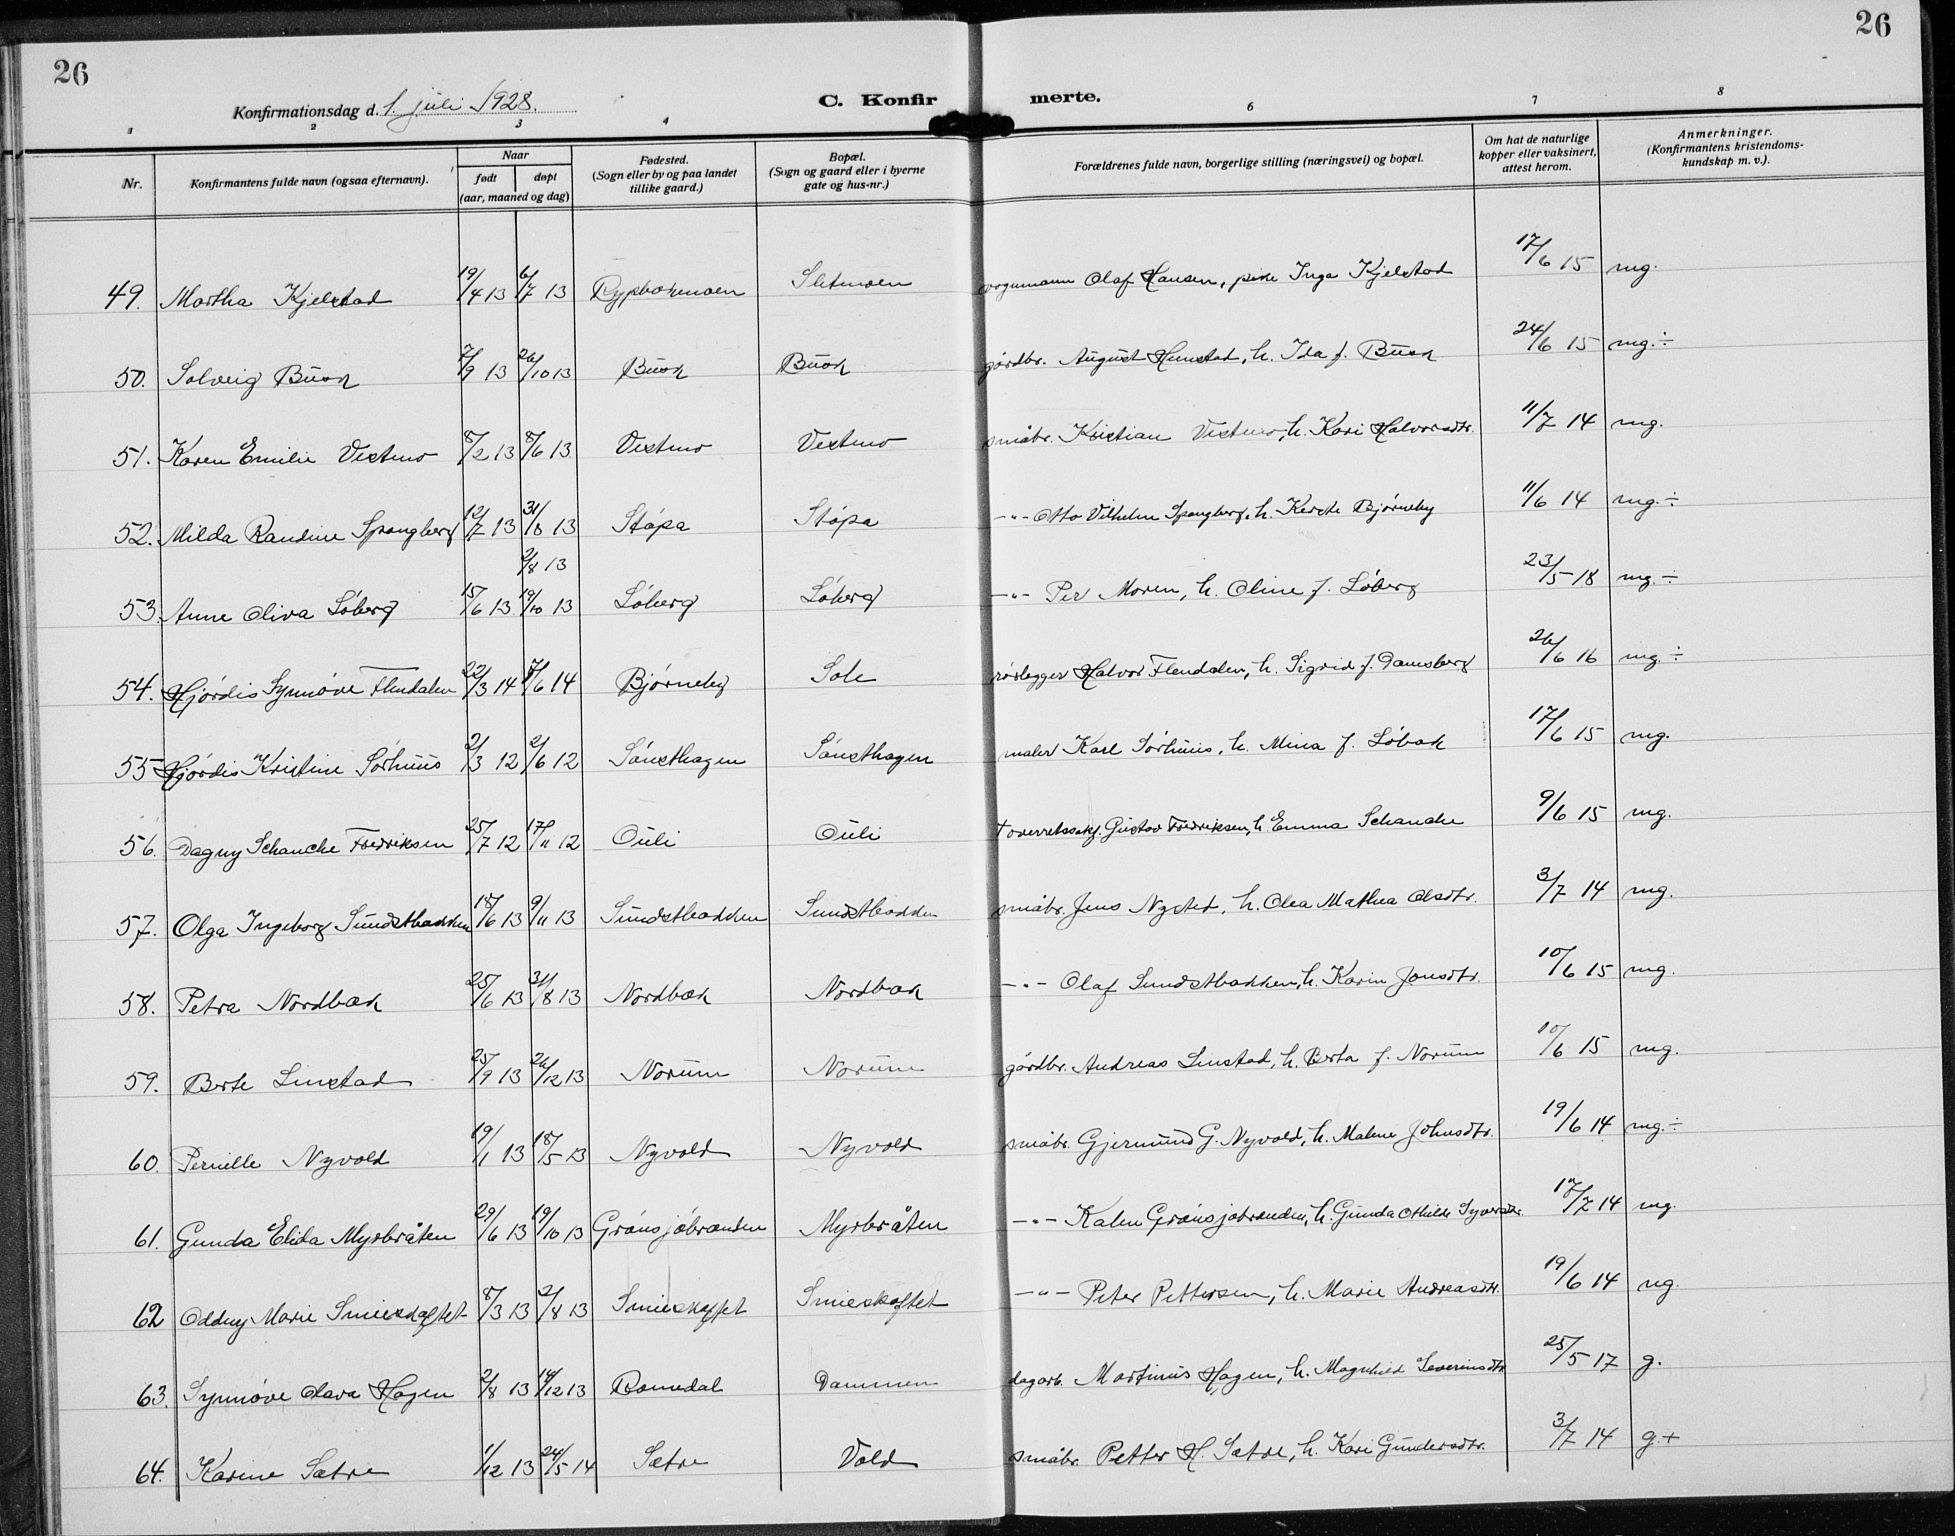 26
26
Konfirmationsdag d. 1. juli 1928.
C. Konfirmerte.
1 2 3 4 6 7 8
Nr. Konfirmantens fulde navn (ogsaa efternavn). Naar født døpt (aar, maaned og dag) Fødested. (Sogn eller by og paa landet tillike gaard.) Bopæl. (Sogn og gaard eller i byerne gate og hus-nr.) Forældrenes fulde navn, borgerlige stilling (næringsvei) og bopæl. Om hat de naturlige kopper eller vaksinert, attest herom. Anmerkninger. (Konfirmantens kristendomskundskap m. v.).
49. Martha Kjelstad 19/4 13 6/7 13 Sletmoen vognmann Olaf Hansen, pike Inga Kjelstad 17/6 15 mg.
50. Solveig Busk 7/9 13 26/10 13 Busk Busk gårdbr. August Hemstad, h. Ida f. Busk 24/6 15 mg.÷
51. Karen Emilie Vestmo 8/2 13 8/6 13 Vestmo Vestmo småbr. Kristian Vestmo, h. Kari Halvorsdtr. 11/7 14 mg.
52. Milda Randine Spangberg 12/7 13 31/8 13 Støpa Støpa -"- Otto Vilhelm Spangberg, h. Kerste Bjørneby 11/6 14 mg.÷
2/8 13
53. Anne Oliva Løberg 15/6 13 19/10 13 Løberg Løberg -"- Per Moren, h. Oline f. Løberg 23/5 18 mg.÷
54. Hjørdis Synnøve Flendalen 22/3 14 7/6 14 Bjørneby Sole rørlegger Halvor Flendalen, h. Sigrid f. Damsberg 26/6 16 mg.÷
55 Hjørdis Kristine Sørhuus 2/3 12 2/6 12 Sønsthagen Sønsthagen maler Karl Sørhuus, h. Mina f. Løbak 17/6 15 mg.
56. Dagny Schanche Fredriksen 25/7 12 17/11 12 Ouli Ouli † overretssakf. Gustav Fredriksen, h Emma Schanche 9/6 15 mg.
57. Olga Ingeborg Sundstbakken 18/6 13 9/11 13 Sundstbakken Sundstbakken småbr. Jens Nysted, h. Olea Mathea Olsdtr. 3/7 14 mg.
58. Petra Nordbæk 25/6 13 31/8 13 Nordbæk Nordbæk -"- Olaf Sundstbakken, h. Karin Jonsdtr. 10/6 15 mg.
59. Berte Linstad 25/9 13 26/12 13 Norum Norum gårdbr. Andreas Linstad, h. Berta f. Norum 10/6 15 mg.
60. Pernille Nyvold 19/1 13 18/5 13 Nyvold Nyvold småbr. Gjermund G. Nyvold, h. Malene Johnsdtr. 19/6 14 mg.÷
61. Gunda Elida Myrbråten 29/6 13 19/10 13 Grønsjøbrænden Myrbråten -"- Kalen Grønsjøbrænden, h. Gunda Othilde Syversdtr. 17/7 14 mg.
62 Oddny Marie Smieskaftet 8/3 13 2/8 13 Smieskaftet Smieskaftet -"- Peter Pettersen, h. Marie Andreasdtr. 19/6 14 ng.
63. Synnøve Olava Hagen 2/8 13 14/12 13 Romedal Dammen dagarb. Martinus Hagen, h. Magnhild Severinsdtr. 25/5 17 g.
64. Karine Sætre 1/12 13 24/5 14 Sætre Vold småbr. Petter H. Sætre, h. Kari Gundersdtr. 3/7 14 g.+